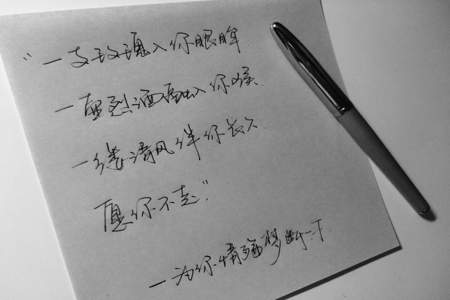 “一支玫瑰入你眼眸
一壶烈酒入你喉
一缕清风伴你长久
愿你不走”
—为你情殇梦断